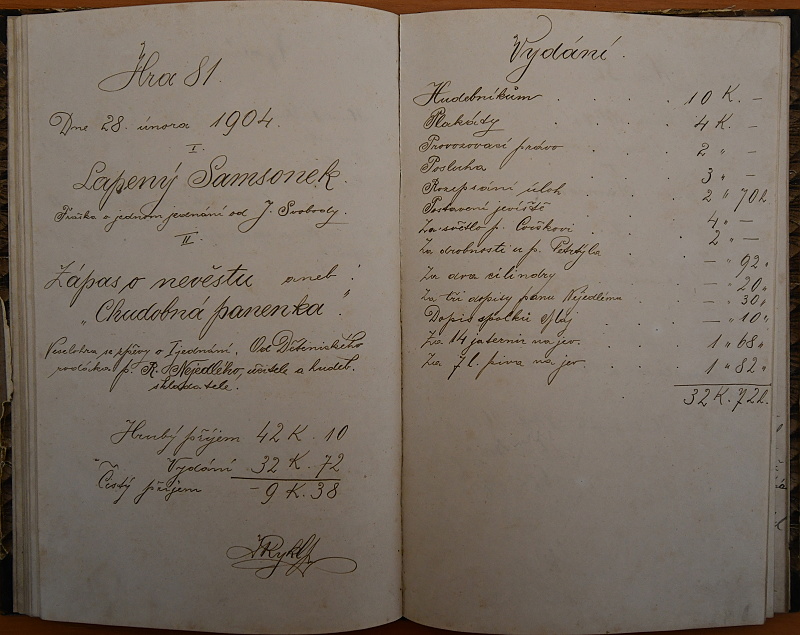 Hra 81.
Dne 28. února 1904.
I.
Lapený Samsonek.
Fraška o jednom jednání od J. Svobody.
II.
Zápas o nevěstu aneb:
„Chudobná panenka."
Veselohra se zpěvy o 1 jednání. Od Dětenického
rodáka p. R. Nejedlého, učitele a hudeb.
skladatele.
Hrubý příjem 42 K. 10
Vydání 32 K. 72
Čistý příjem – 9 K. 38
Vydání.
Hudebníkům . . . . 10 K. —
Plakáty . . . . 4 K. —
Provozovací právo . . . 2 " —
Posluha . . . . 3 " —
Rozepsání úloh . . . 2 " 70 h.
Postavení jeviště . . . 4 " —
Za světlo p. Cvičkovi . . . 2 " —
Za drobnosti u p. Petrtýla . . — " 92 "
Za dva cilindry . . . — " 20 "
Za tři dopisy panu Nejedlému . . — " 30 "
Dopis spolku Máj . . . — " 10 "
Za 14 jaternic na jev. . . . 1 " 68 "
Za 7 l. piva na jev. . . . 1 " 82 "
32 K. 72 h.